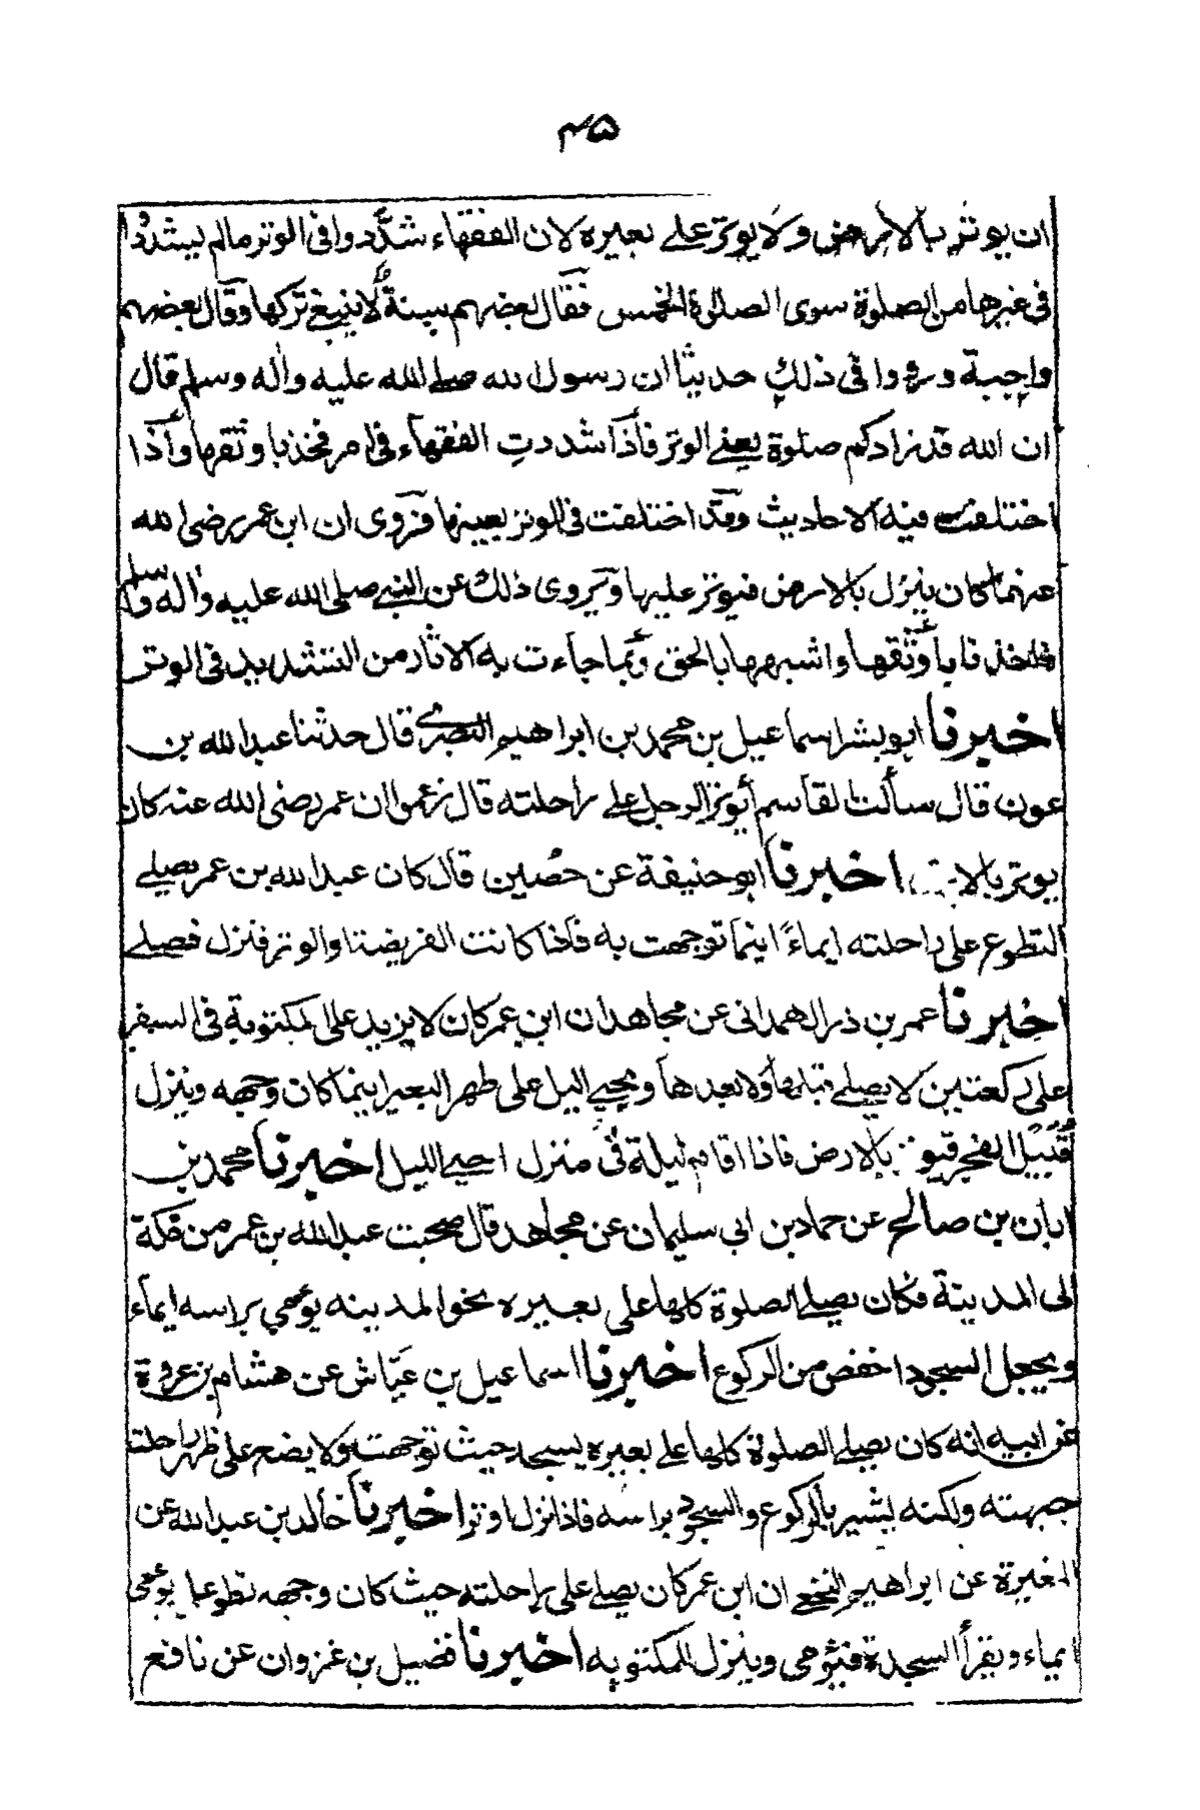 ۴۵
ان يوتر بالارض ولا يوتر على بعيره لان الفقهاء شدّدوا فى الوتر مالم يشددوا
فى غيرها من الصلوة سوى الصلوة الخمس فقال بعضهم سنة لا ينبغى تركها وقال بعضهم
واجبة ورووا فى ذلك حديثا ان رسول الله صلے الله عليه واله وسلم قال
ان الله قد زادكم صلوة يعنے الوتر فاذا شددتِ الفقهاء فى امر فخذ با وثقها واذا
اختلفت فيه الاحاديث وقد اختلفت فى الوتر بعينها فروى ان ابن عمر رضى الله
عنهما كان ينزل بالارض فيوتر عليها ويروى ذلك عن النبے صلى الله عليه واله وسلم
فلاخذنا باوثقها واشبهها بالحق وبما جاءت به الاثار من التشديد فى الوتر
اخبرنا ابوبشر اسماعيل بن محمد بن ابراهيم البصرے قال حدثنا عبدالله بن
عون قال سألت القاسم أيوتر الرجل على راحلته قال زعموا ان عمر رضى الله عنه كان
يوتر بالارض اخبرنا ابو حنيفة عن حصين قال كان عبدالله بن عمر يصلے
التطوع على راحلته ايماءً اينما توجهت به فاذا كانت الفريضة اوالوتر فنزل فصلے
اخبرنا عمر بن ذر الهمدانى عن مجاهد ان ابن عمر كان لا يزيد على المكتوبة فى السفر
على ركعتين لا يصلے قبلها ولا بعدها ويحيے اليل على ظهر البعير اينما كان وجهه وينزل
قُبَيل الفجر فيوتر بالارض فاذا اقام ليلة فى منزل احيے الليل اخبرنا محمد بن
ابان بن صالح عن حماد بن ابى سليمان عن مجاهد قال صحبت عبدالله بن عمر من مكة
الى المدينة فكان يصلے الصلوة كلها على بعيره نحو المدينه يومى براسه ايماء
ويجعل السجود اخفض من الركوع اخبرنا اسماعيل بن عيّاش عن هشام بن عروة
عن ابيه انه كان يصلے الصلوة كلها على بعيره يسجد حيث توجهت ولا يضع على ظهر راحلته
جبهته ولكنه يشير بالركوع والسجود براسه فاذا نزل اوتر اخبرنا خالد بن عبدالله عن
المغيرة عن ابراهيم النخعے ان ابن عمر كان يصلے على راحلته حيث كان وجهه تطوعا يومى
ايماء ويقرأ السجدة فيؤمى وينزل للمكتوبه اخبرنا فضيل بن غزوان عن نافع